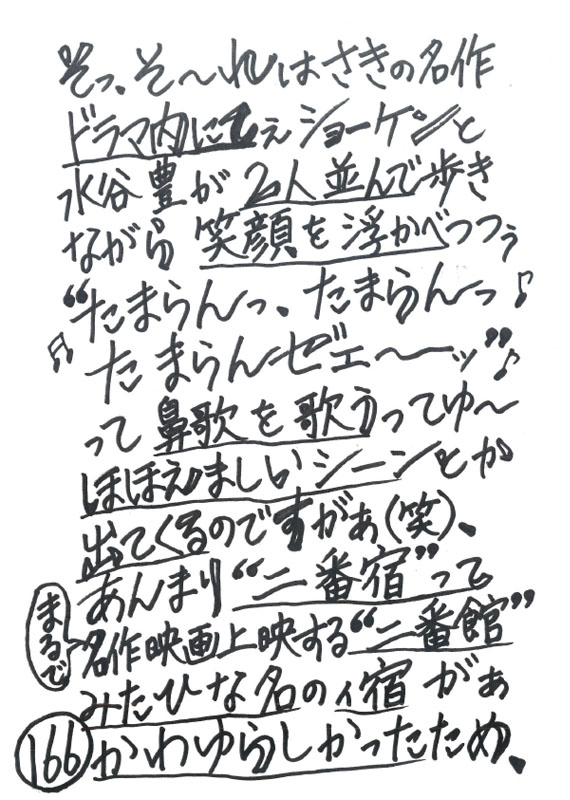 そっ、そ〜れはさきの名作
ドラマ内にてぇショーケンと
水谷豊が2人並んで歩き
ながら笑顔を浮かべつつぅ
“たまらんっ、たまらんっ♪
♬たまらんゼェ〜〜ッ”♪
って鼻歌を歌うってゆ〜
ほほえましいシーンとか
出てくるのですがぁ(笑)、
あんまり“二番宿”って
まるで
名作映画上映する“二番館”
みたひな名のィ宿がぁ
166 かわゆらしかったため、